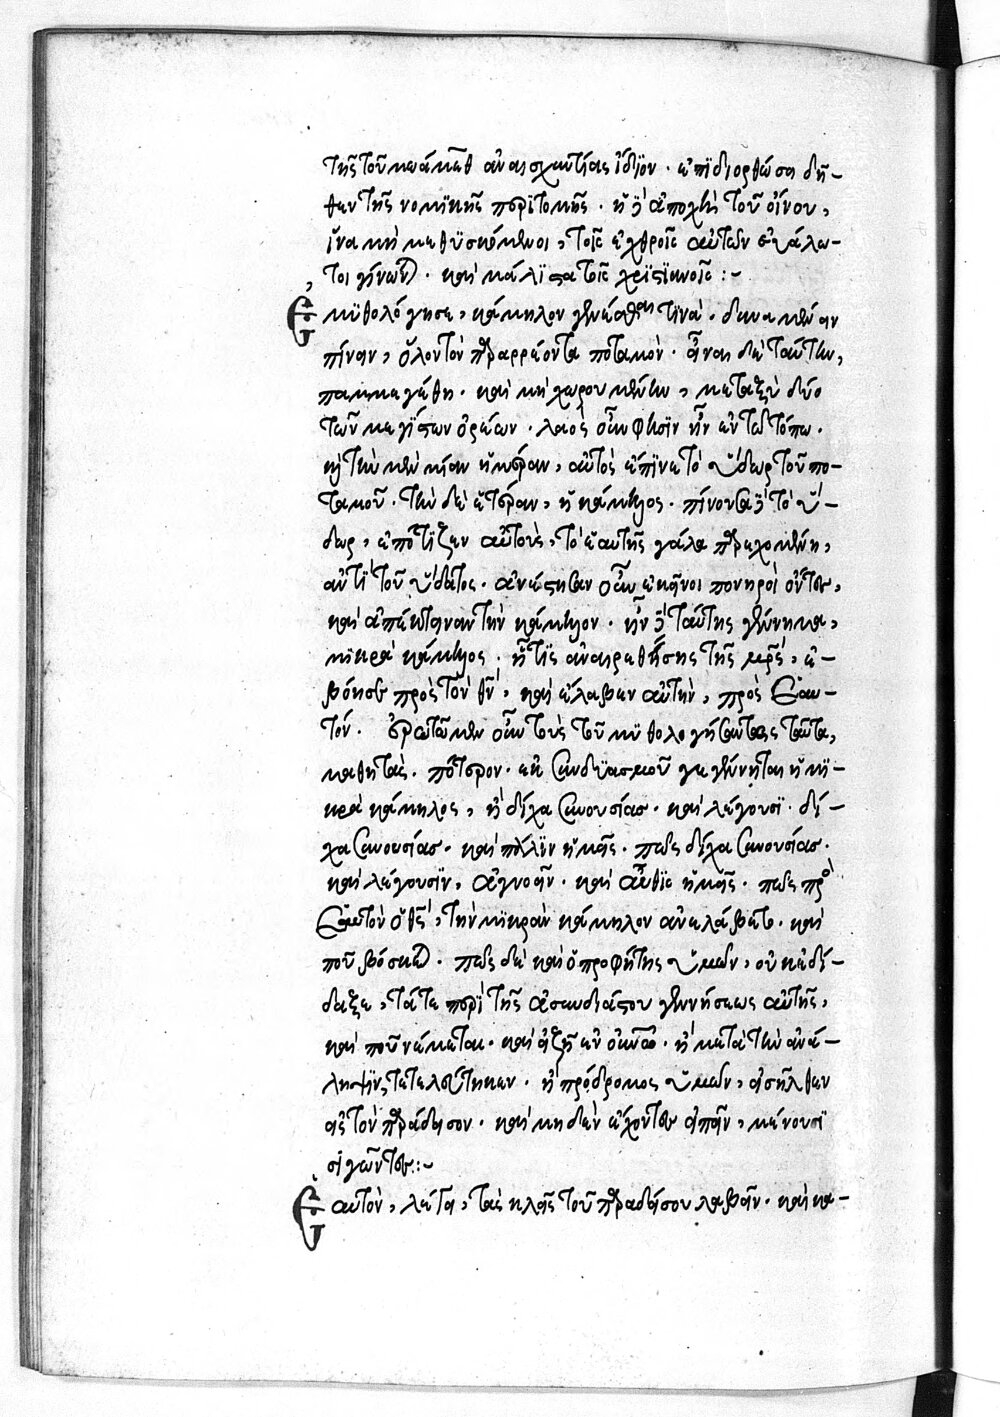 τῆς τοῦ μωάμεθ ἀναισχυντίας ἴδϊον · ἐπϊδιορθώσει δῆ–
θεν τῆς νομϊκῆς περϊτομῆς · ἡ δὲ ἀποχὴ τοῦ οἴνου,
ἵνα μὴ μεθϋσκόμενοι, τοῖς ἐχθροῖς αὐτῶν εὐάλω–
τοι γίνωνται · καὶ μάλϊστα τοῖς χρϊστϊανοῖς :–
Ἐμϋθολόγησε, κάμηλον γενέσθαι τϊνὰ · δυναμένην
πίνειν, ὅλον τὸν παραρρέοντα ποταμόν · εἶναι δὲ ταύτην,
παμμεγέθη · καὶ μὴ χωρουμένην, μεταξὺ δύο
τῶν μεγίστων ὀρέων · λαὸς οὖν φησϊν ἦν ἐν τῶ τόπω ·
κὴ τὴν μὲν μίαν ἡμέραν, αὐτὸς ἔπϊνε τὸ ὕδωρ τοῦ πο–
ταμοῦ · τὴν δὲ ἑτέραν, ἡ κάμηλος · πίνουσα δὲ τὸ ὕ–
δωρ, ἐπότϊζεν αὐτοὺς, τὸ ἑαυτῆς γάλα παρεχομένη,
ἀντὶ τοῦ ὕδατος · ἀνέστησαν οὖν ἐκεῖνοι πονηροὶ ὄντες,
καὶ ἀπέκτειναν τὴν κάμηλον · ἦν δὲ ταύτης γέννημα,
μϊκρὰ κάμηλος · ἥτϊς ἀναιρεθείσης τῆς μητρὸς, ἐ–
βόησε πρὸς τὸν θεὸν, καὶ ἔλαβεν αὐτὴν, πρὸς ἑαυ–
τόν · ἐρωτῶμεν οὖν τοὺς τοῦ μϋθολογήσαντος ταῦτα,
μαθητὰς · πότερον · ἐκ συνδϋασμοῦ γεγέννηται ἡ μϊ–
κρὰ κάμηλος, ἢ δίχα συνουσίας · καὶ λέγουσϊ · δί–
χα συνουσίας · καὶ πάλϊν ἡμεῖς · πῶς δίχα συνουσίας ·
καὶ λέγουσϊν, ἀγνοεῖν · καὶ αὖθϊς ἡμεῖς · πῶς πρὸς
ἑαυτὸν ὁ θεὸς, τὴν μϊκρὰν κάμηλον ἀνελάβετο · καὶ
ποῦ βόσκεται · πῶς δὲ καὶ ὁ προφήτης ὑμῶν, οὐκ ἐδί–
δαξε, τά τε περϊ τῆς ἀσυνδυάστου γεννήσεως αὐτῆς,
καὶ ποῦ νέμεται · καὶ εἰ ζῆ ἐν οὐρανῶ · ἢ μετὰ τὴν ἀνά–
ληψϊν, τετελεύτηκεν · ἢ πρόδρομος ὑμῶν, εἰσῆλθεν
εἰς τὸν παράδεισον · καὶ μηδὲν ἔχοντες εἰπεῖν, μένουσϊ
σιγῶντες :–
Ἑαυτὸν, λέγει, τὰς κλεῖς τοῦ παραδείσου λαβεῖν · καὶ με–